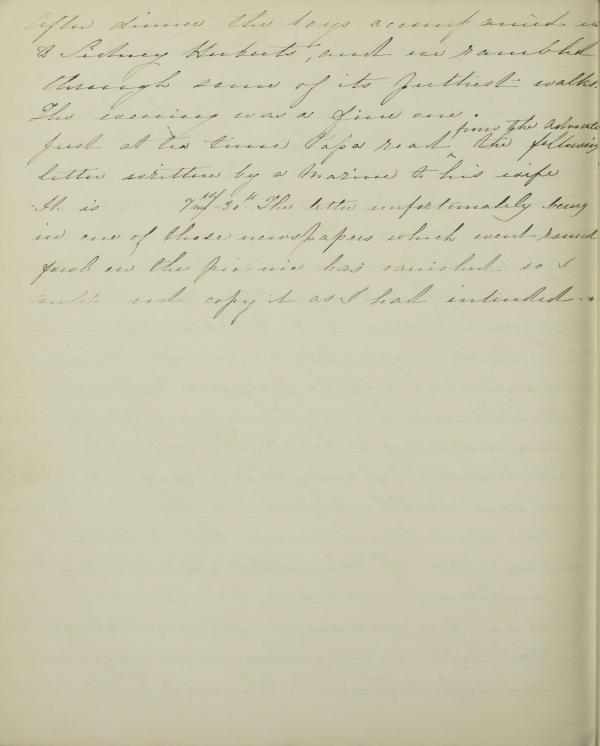 After dinner the boys accompanied us
to Sidney Huberts', and we rambled
through some of its prettiest walks.
The evening was a fine one.
Just at tea time Papa read from the Advocate the following
letter written by a Marine to his wife
It is 7 mo 30th The letter unfortunately being
in one of those newspapers which went round
fowls on the pic-nic has vanished so I
could not copy it as I had intended.